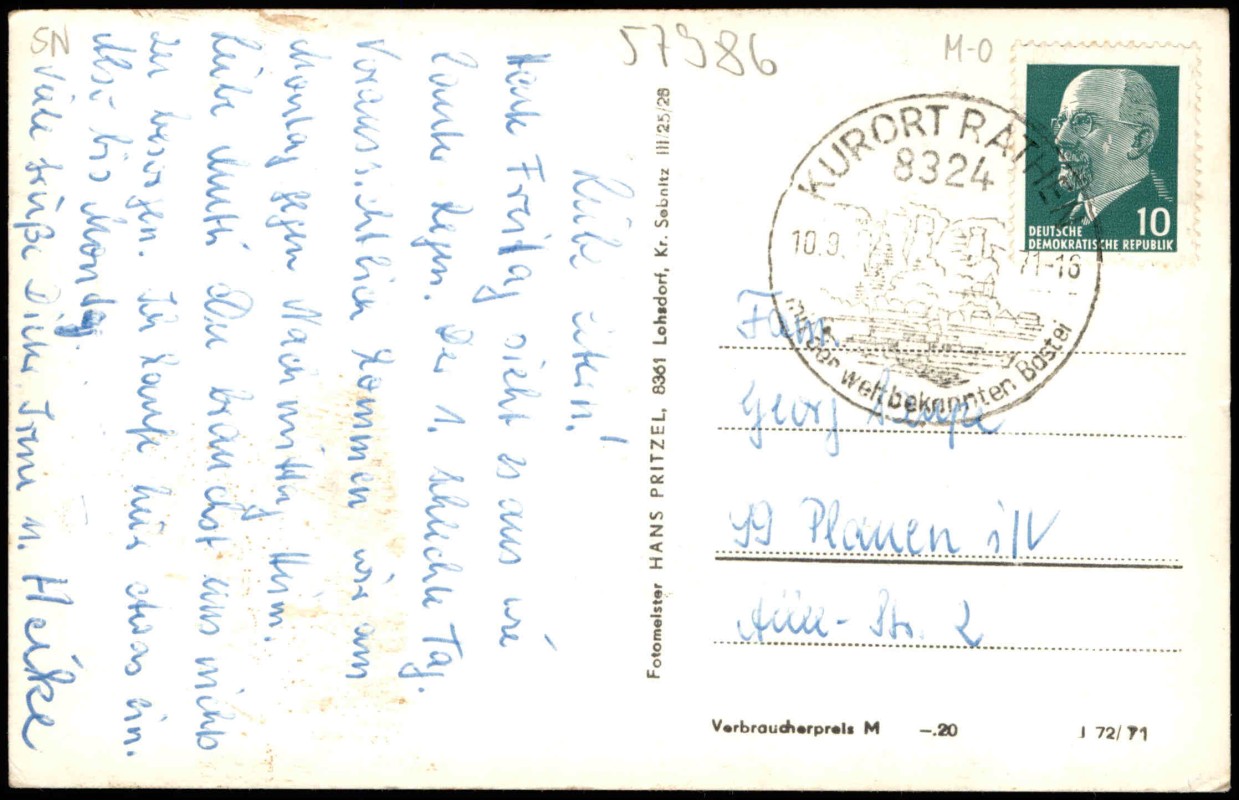 SN
57986
M-O
Liebe Eltern!
Heute Freitag sieht es aus wie
lauter Regen. Der 1. schlechte Tag.
Voraussichtlich kommen wir am
Montag gegen Nachmittag Heim.
Liebe Mutti Du brauchst uns nichts
zu besorgen. Ich kaufe hier etwas ein.
Also bis Montag
Viele Grüße Dicke Irene u. Heike
Fotomeister HANS PRITZEL, 8361 Lohsdorf, Kr. Sebnitz III/25/28
KURORT RATHEN
8324
10.9. 71-16
mit der weltbekannten Bastei
10
DEUTSCHE
DEMOKRATISCHE REPUBLIK
Fam.
Georg
99 Plauen i/V
Str. 2
Verbraucherpreis M -.20
J 72/71